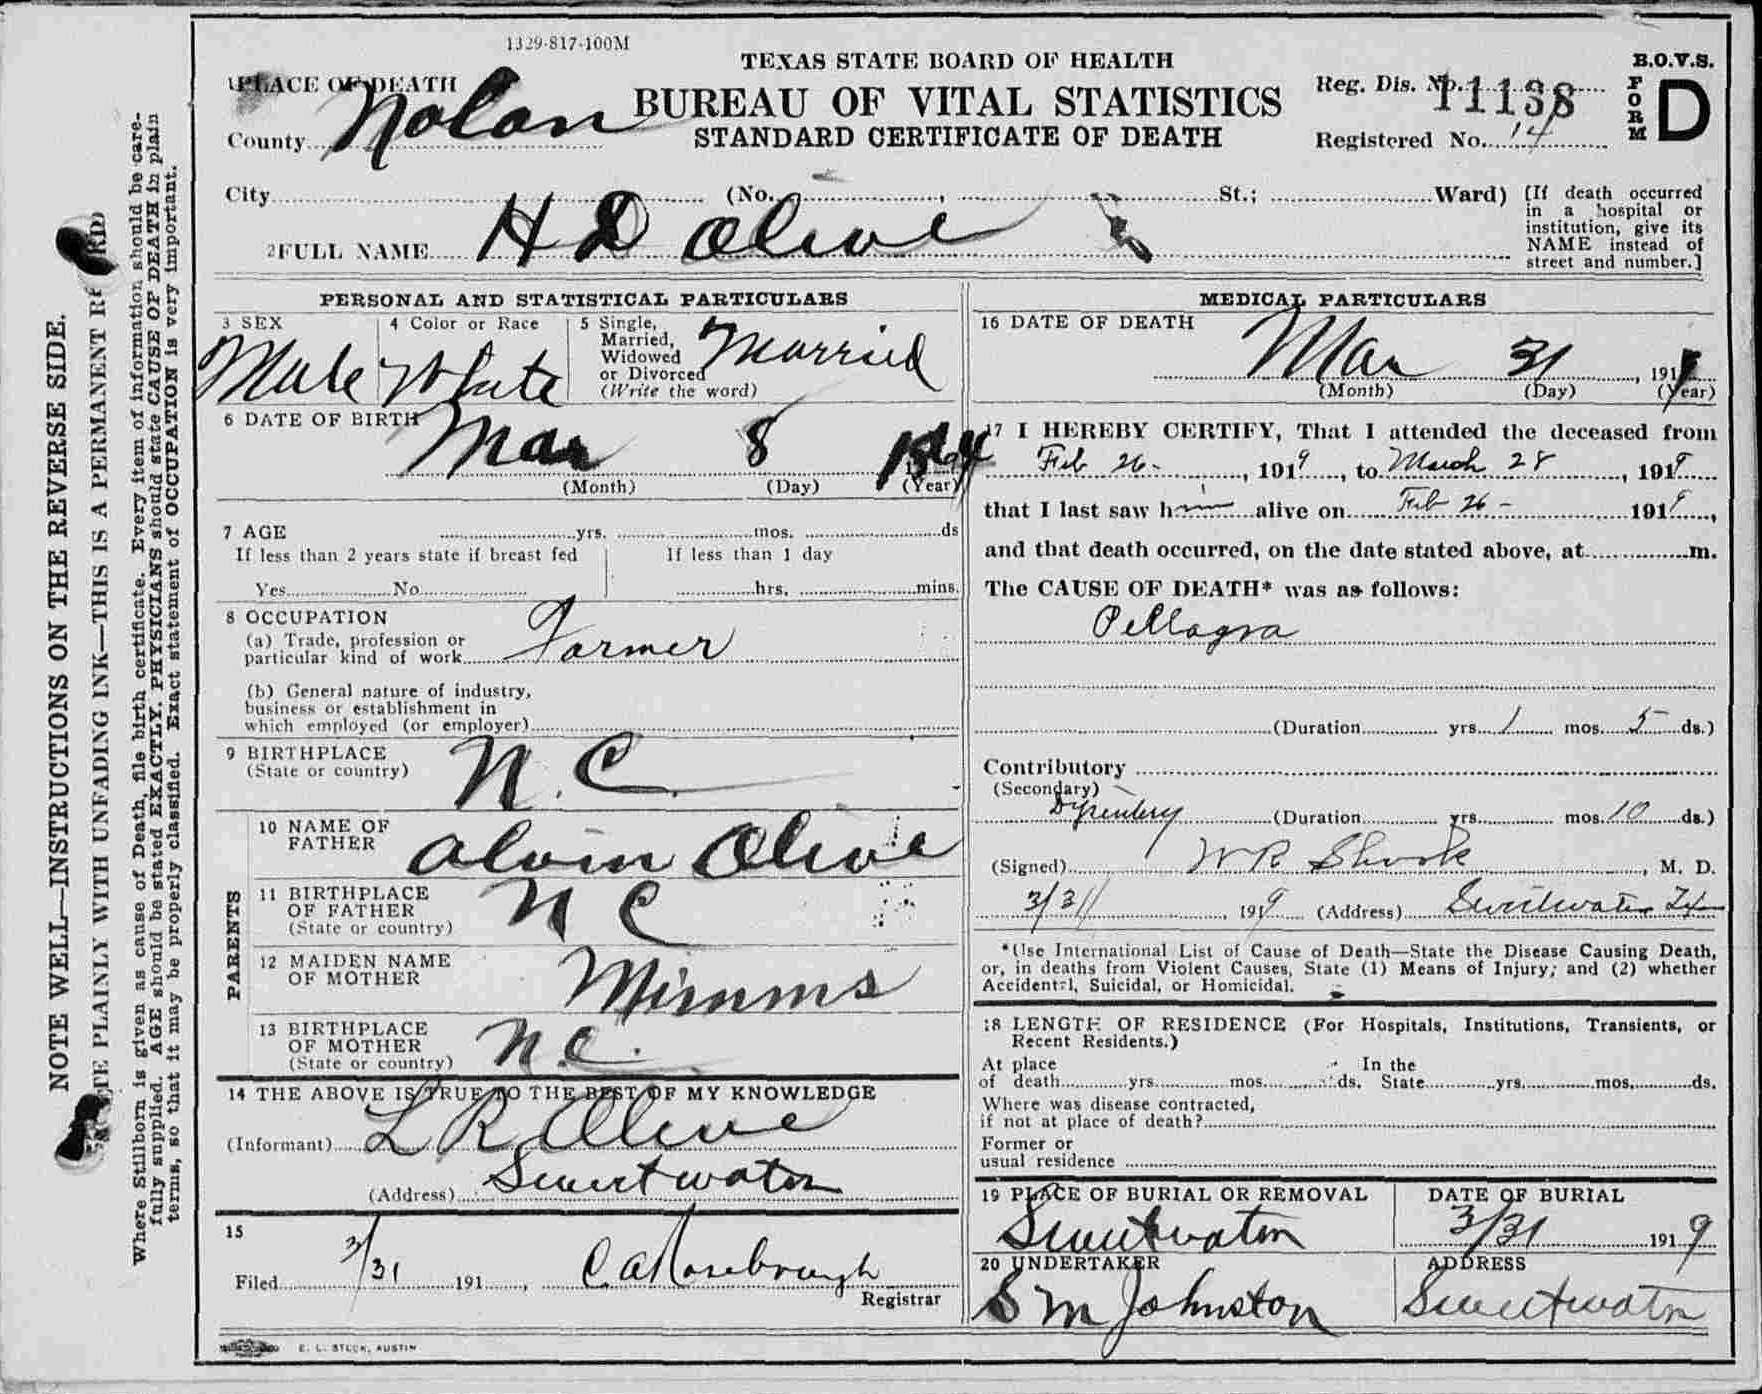 1329-817-100M
TEXAS STATE BOARD OF HEALTH
BUREAU OF VITAL STATISTICS
STANDARD CERTIFICATE OF DEATH
B.O.V.S.
FORM D
Reg. Dis. No. 11138
Registered No. 14
1 PLACE OF DEATH
County Nolan
City (No. , St.; Ward)
[If death occurred
in a hospital or
institution, give its
NAME instead of
street and number.]
2 FULL NAME H D Olive
PERSONAL AND STATISTICAL PARTICULARS
3 SEX
Male
4 Color or Race
White
5 Single,
Married,
Widowed
or Divorced
(Write the word)
Married
6 DATE OF BIRTH
Mar 8
(Month) (Day) (Year)
7 AGE yrs. mos. ds
If less than 2 years state if breast fed
Yes No
If less than 1 day
hrs. mins.
8 OCCUPATION
(a) Trade, profession or
particular kind of work Farmer
(b) General nature of industry,
business or establishment in
which employed (or employer)
9 BIRTHPLACE
(State or country)
N. C.
PARENTS
10 NAME OF
FATHER
Alvin Olive
11 BIRTHPLACE
OF FATHER
(State or country)
N C
12 MAIDEN NAME
OF MOTHER
Mimms
13 BIRTHPLACE
OF MOTHER
(State or country)
N.C.
14 THE ABOVE IS TRUE TO THE BEST OF MY KNOWLEDGE
(Informant) L R Olive
(Address) Sweetwater
15
Filed 3/31 191 , C A Rosebrough
Registrar
MEDICAL PARTICULARS
16 DATE OF DEATH
Mar 31, 1919
(Month) (Day) (Year)
17 I HEREBY CERTIFY, That I attended the deceased from
Feb 26-, 1919, to March 28, 1919
that I last saw him alive on Feb 26- 1919,
and that death occurred, on the date stated above, at m.
The CAUSE OF DEATH* was as follows:
Pellagra
(Duration yrs. 1 mos. 5 ds.)
Contributory
(Secondary)
Dysentery (Duration yrs. mos. 10 ds.)
(Signed) W R Shook, M. D.
3/31, 1919 (Address) Sweetwater Tex
*Use International List of Cause of Death—State the Disease Causing Death,
or, in deaths from Violent Causes, State (1) Means of Injury; and (2) whether
Accidental, Suicidal, or Homicidal.
18 LENGTH OF RESIDENCE (For Hospitals, Institutions, Transients, or
Recent Residents.)
At place In the
of death yrs. mos. ds. State yrs. mos. ds.
Where was disease contracted,
if not at place of death?
Former or
usual residence
19 PLACE OF BURIAL OR REMOVAL
Sweetwater
DATE OF BURIAL
3/31 1919
20 UNDERTAKER
S M Johnston
ADDRESS
Sweetwater
E. L. STECK, AUSTIN
NOTE WELL—INSTRUCTIONS ON THE REVERSE SIDE.
PLAINLY WITH UNFADING INK—THIS IS A PERMANENT
Where Stillborn is given as cause of Death, file birth certificate. Every item of information should be care-
fully supplied. AGE should be stated EXACTLY. PHYSICIANS should state CAUSE OF DEATH in plain
terms, so that it may be properly classified. Exact statement of OCCUPATION is very important.